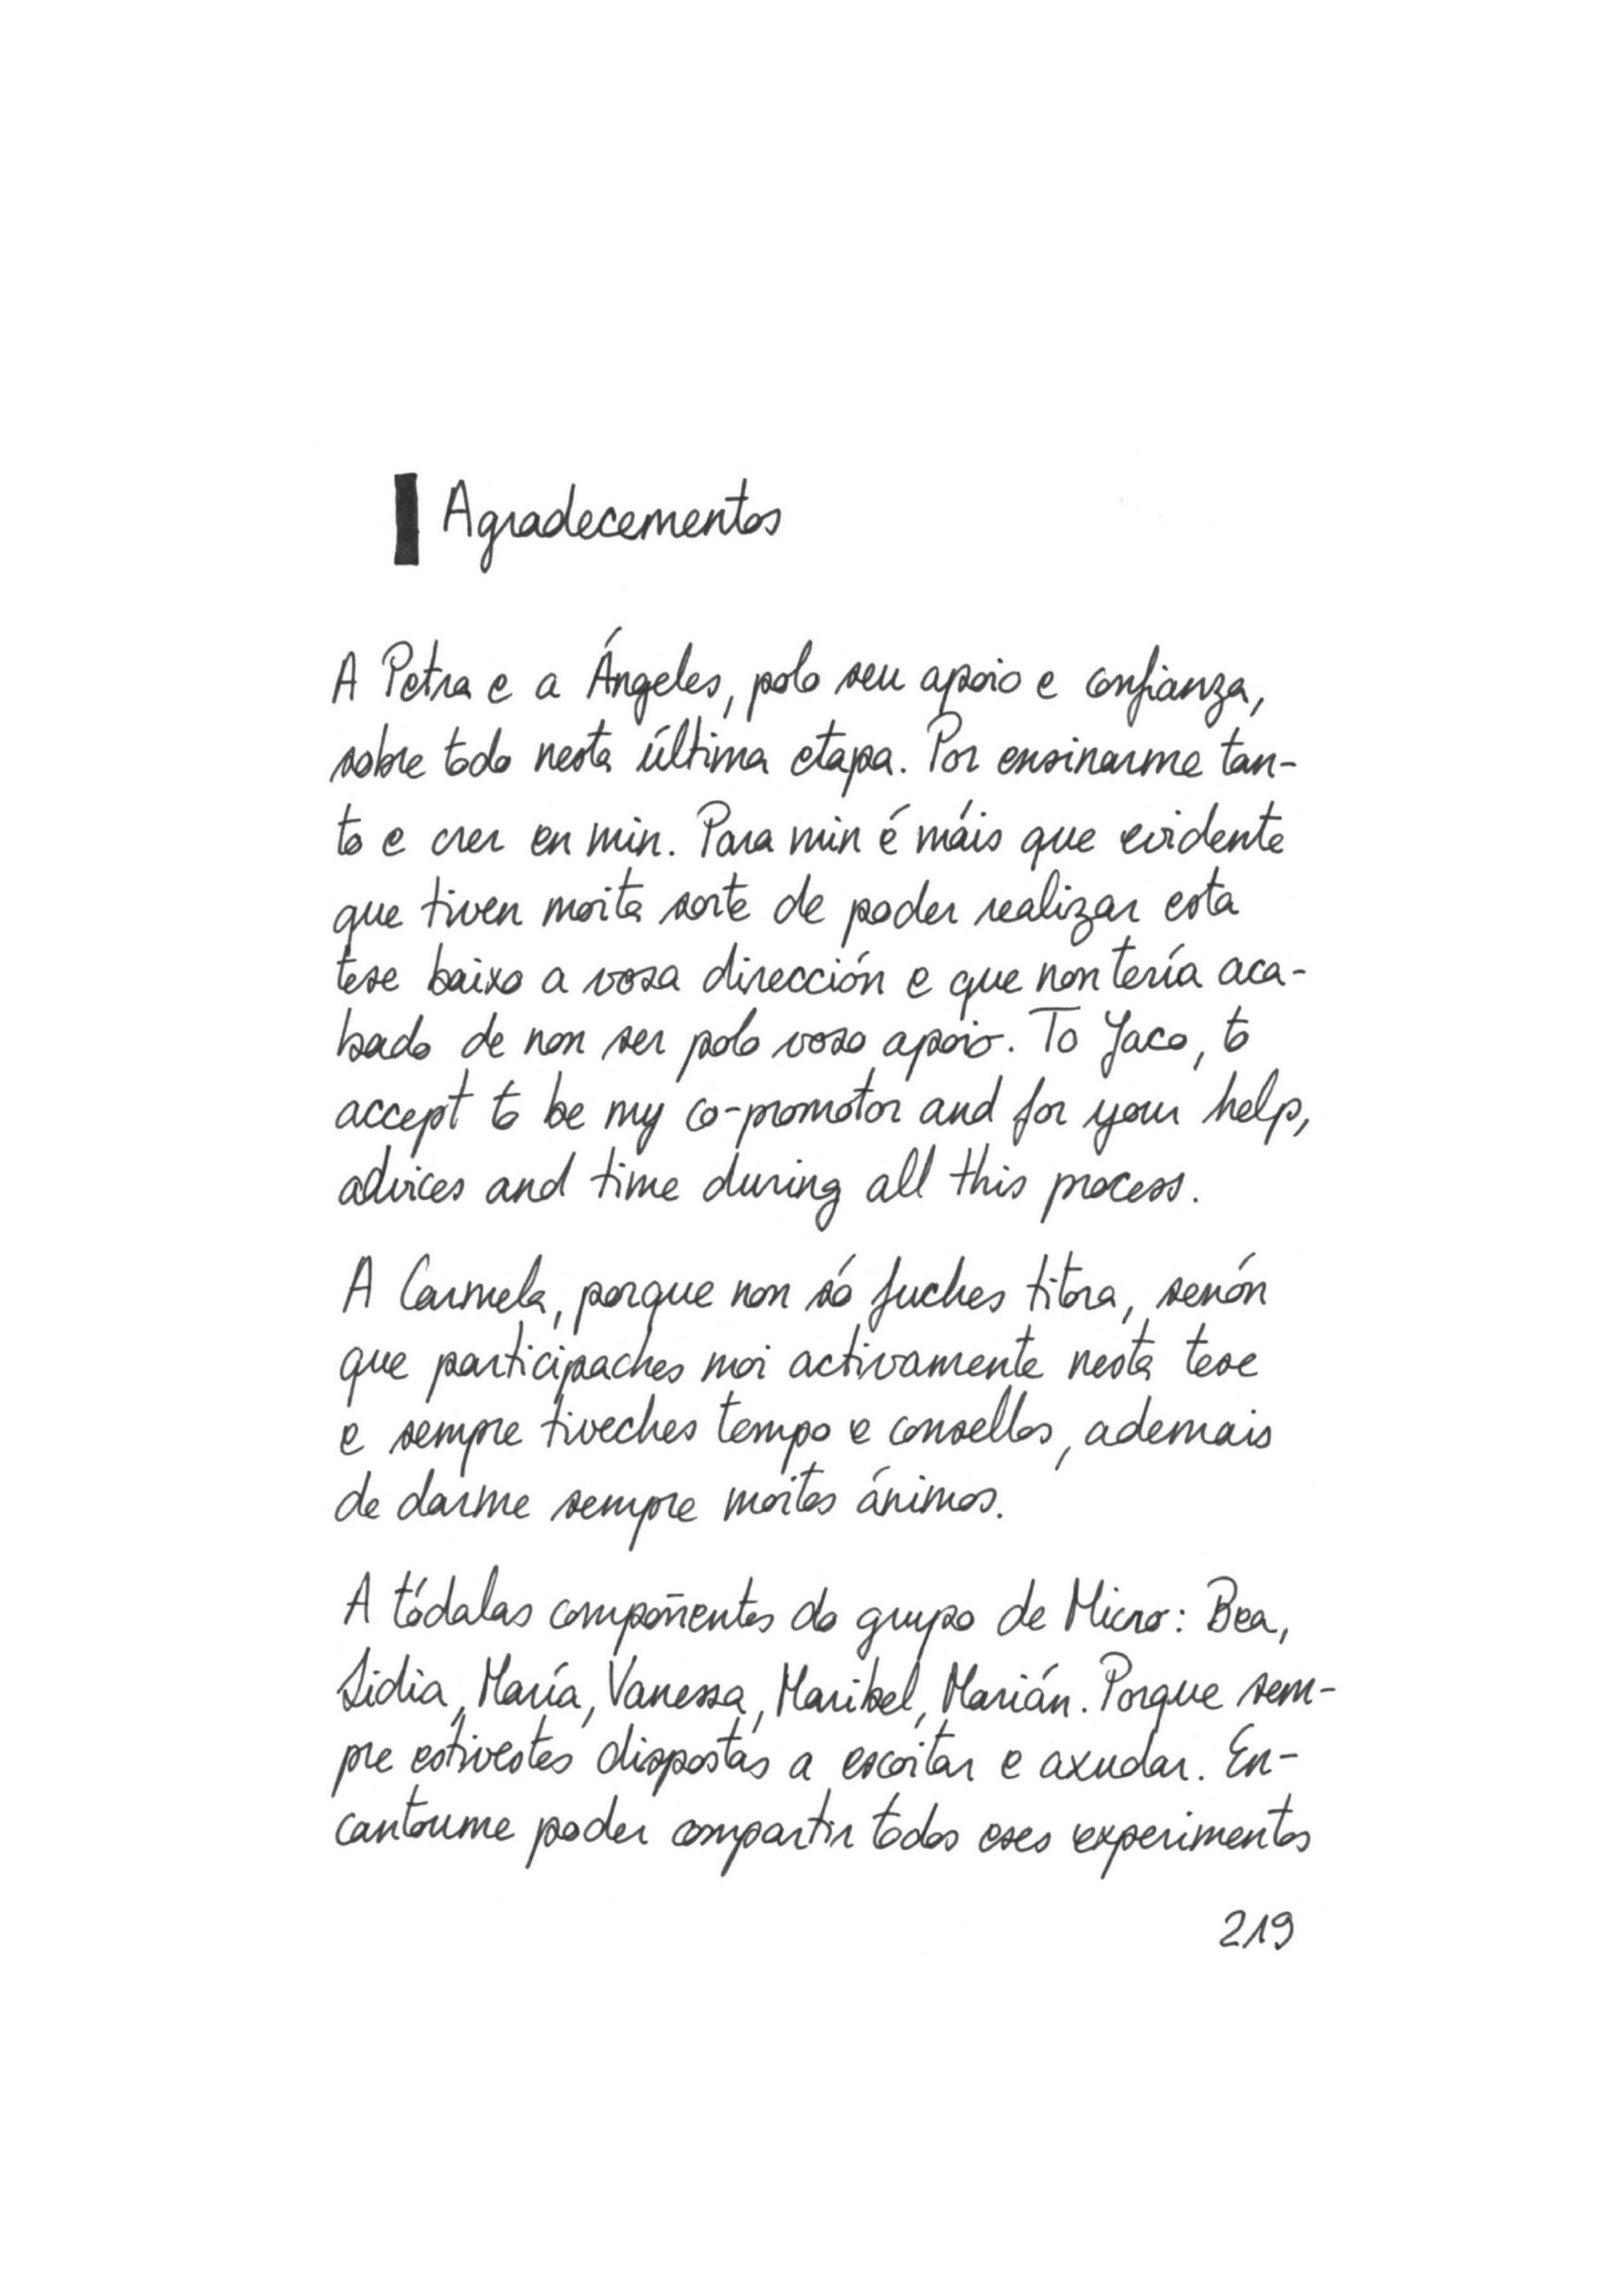 Agradecementos
A Petra e a Ángeles, polo seu apoio e confianza,
sobre todo nesta última etapa. Por ensinarme tan-
to e crer en min. Para min é máis que evidente
que tiven moita sorte de poder realizar esta
tese baixo a vosa dirección e que non tería aca-
bado de non ser polo voso apoio. To Jaco, to
accept to be my co-promotor and for your help,
advices and time during all this process.
A Carmela, porque non só fuches titora, senón
que participaches moi activamente nesta tese
e sempre tiveches tempo e consellos, ademais
de darme sempre moitos ánimos.
A tódalas compoñentes do grupo de Micro: Bea,
Lidia, María, Vanessa, Maribel, Marián. Porque sem-
pre estivestes dispostas a escoitar e axudar. En-
cantoume poder compartir todos eses experimentos
219